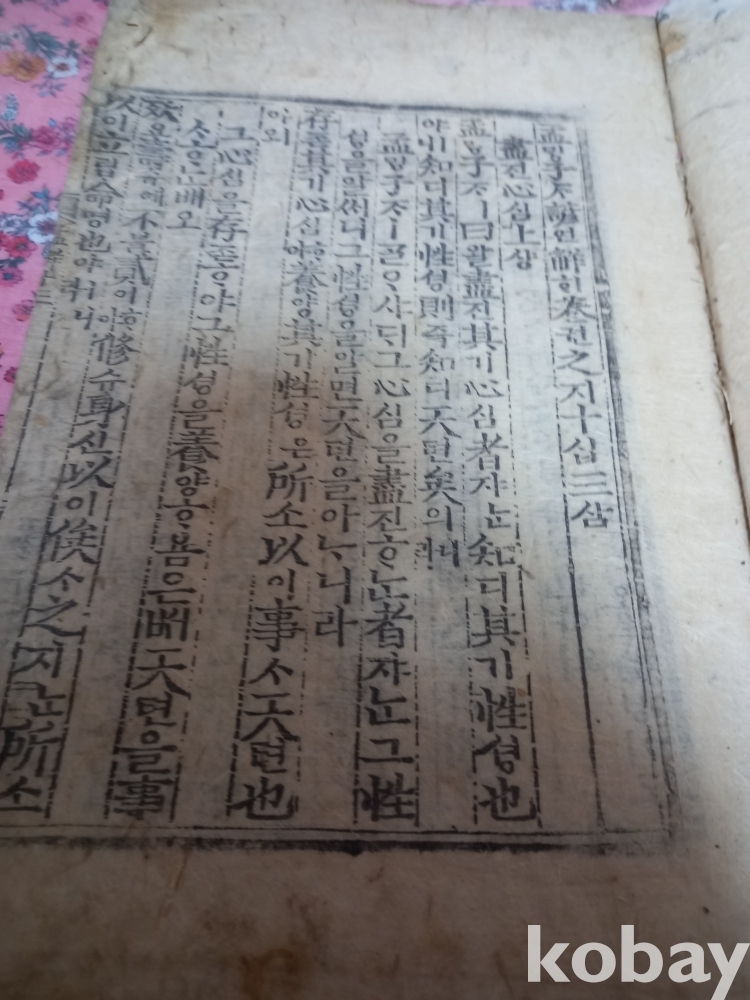 孟ᄆᆡᆼ子ᄌᆞ諺언解ᄒᆡ卷권之지十십三삼
盡진心심上샹
孟ᄆᆡᆼ子ᄌᆞㅣ曰왈盡진其기心심者쟈ᄂᆞᆫ知디其기性셩也
야ㅣ니知디其기性셩則즉知디天텬矣의니라
孟ᄆᆡᆼ子ᄌᆞㅣᄀᆞᆯᄋᆞ샤ᄃᆡ그心심을盡진ᄒᆞᄂᆞᆫ者쟈ᄂᆞᆫ그性
셩을알써니그性셩을알면天텬을아ᄂᆞ니라
存존其기心심ᄒᆞ야養양其기性셩은所소以이事ᄉᆞ天텬也
야ㅣ오
그心심을存존ᄒᆞ야그性셩을養양ᄒᆞ욤은ᄡᅥ天텬을事
ᄉᆞᄒᆞᄂᆞᆫ배오
殀요壽슈애不블貳이ᄒᆞ야修슈身신以이俟ᄉᆞ之지ᄂᆞᆫ所소
以이立립命명也야ㅣ니라
kobay